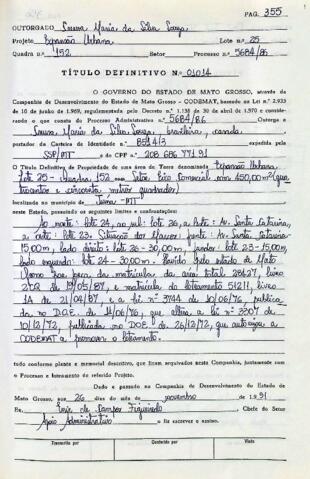 PAG. 355
OUTORGADO Maria da Silva Souza
Projeto Expansão Urbana Lote n.º 25
Quadra n.º 152 Setor Processo n.º 5684/86
TÍTULO DEFINITIVO N.º 01014
O GOVERNO DO ESTADO DE MATO GROSSO, através da
Companhia de Desenvolvimento do Estado de Mato Grosso - CODEMAT, baseado na Lei n.º 2.933
de 10 de junho de 1969, regulamentado pelo Decreto n.º 1.138 de 30 de abril de 1970 e consideran-
do o que consta do Processo Administrativo n.º 5684/86 Outorga a
Maria da Silva Souza, brasileira, casada
portador da Carteira de Identidade n.º expedida pela
SSP/MT e do CPF n.º
O Título Definitivo de Propriedade de uma área de Terra denominada Expansão Urbana
Lote 25 - Quadra 152 com 450,00m² (quatrocentos e cinquenta metros quadrados)
localizada no município de MT
neste Estado, possuindo os seguintes limites e confrontações:
Ao norte: lote 24, ao sul: lote 26, a leste: Av. Santa Catarina,
a oeste: lote 23. Situação dos Marcos: frente: Av. Santa Catarina
15,00m, lado direito: lote 26 - 30,00m, fundos: lote 23 - 15,00m,
lado esquerdo: lote 24 - 30,00m. Havido pelo Estado de Mato
Grosso por da matrícula da área total livro
2TQ de 19/05/87, e matrícula do loteamento 51211, livro
1A de 21/04/87, e a lei nº 3744 de 10/06/76, publica-
da no D.O.E. de 11/06/76, que altera a lei nº 3307 de
10/12/72, publicada no D.O.E. de 26/12/72, que autorizou a
CODEMAT a promover o loteamento.
tudo conforme planta e memorial descritivo, que ficam arquivados nesta Companhia, juntamente com
o Processo e loteamento do referido Projeto.
Dado e passado na Companhia de Desenvolvimento do Estado de
Mato Grosso, aos 26 dias do mês de novembro de 1.991
Eu, José de Campos Figueiredo Chefe do Setor
Apoio Administrativo o fiz escrever e assino.
Transcrito por Conferido por Visto